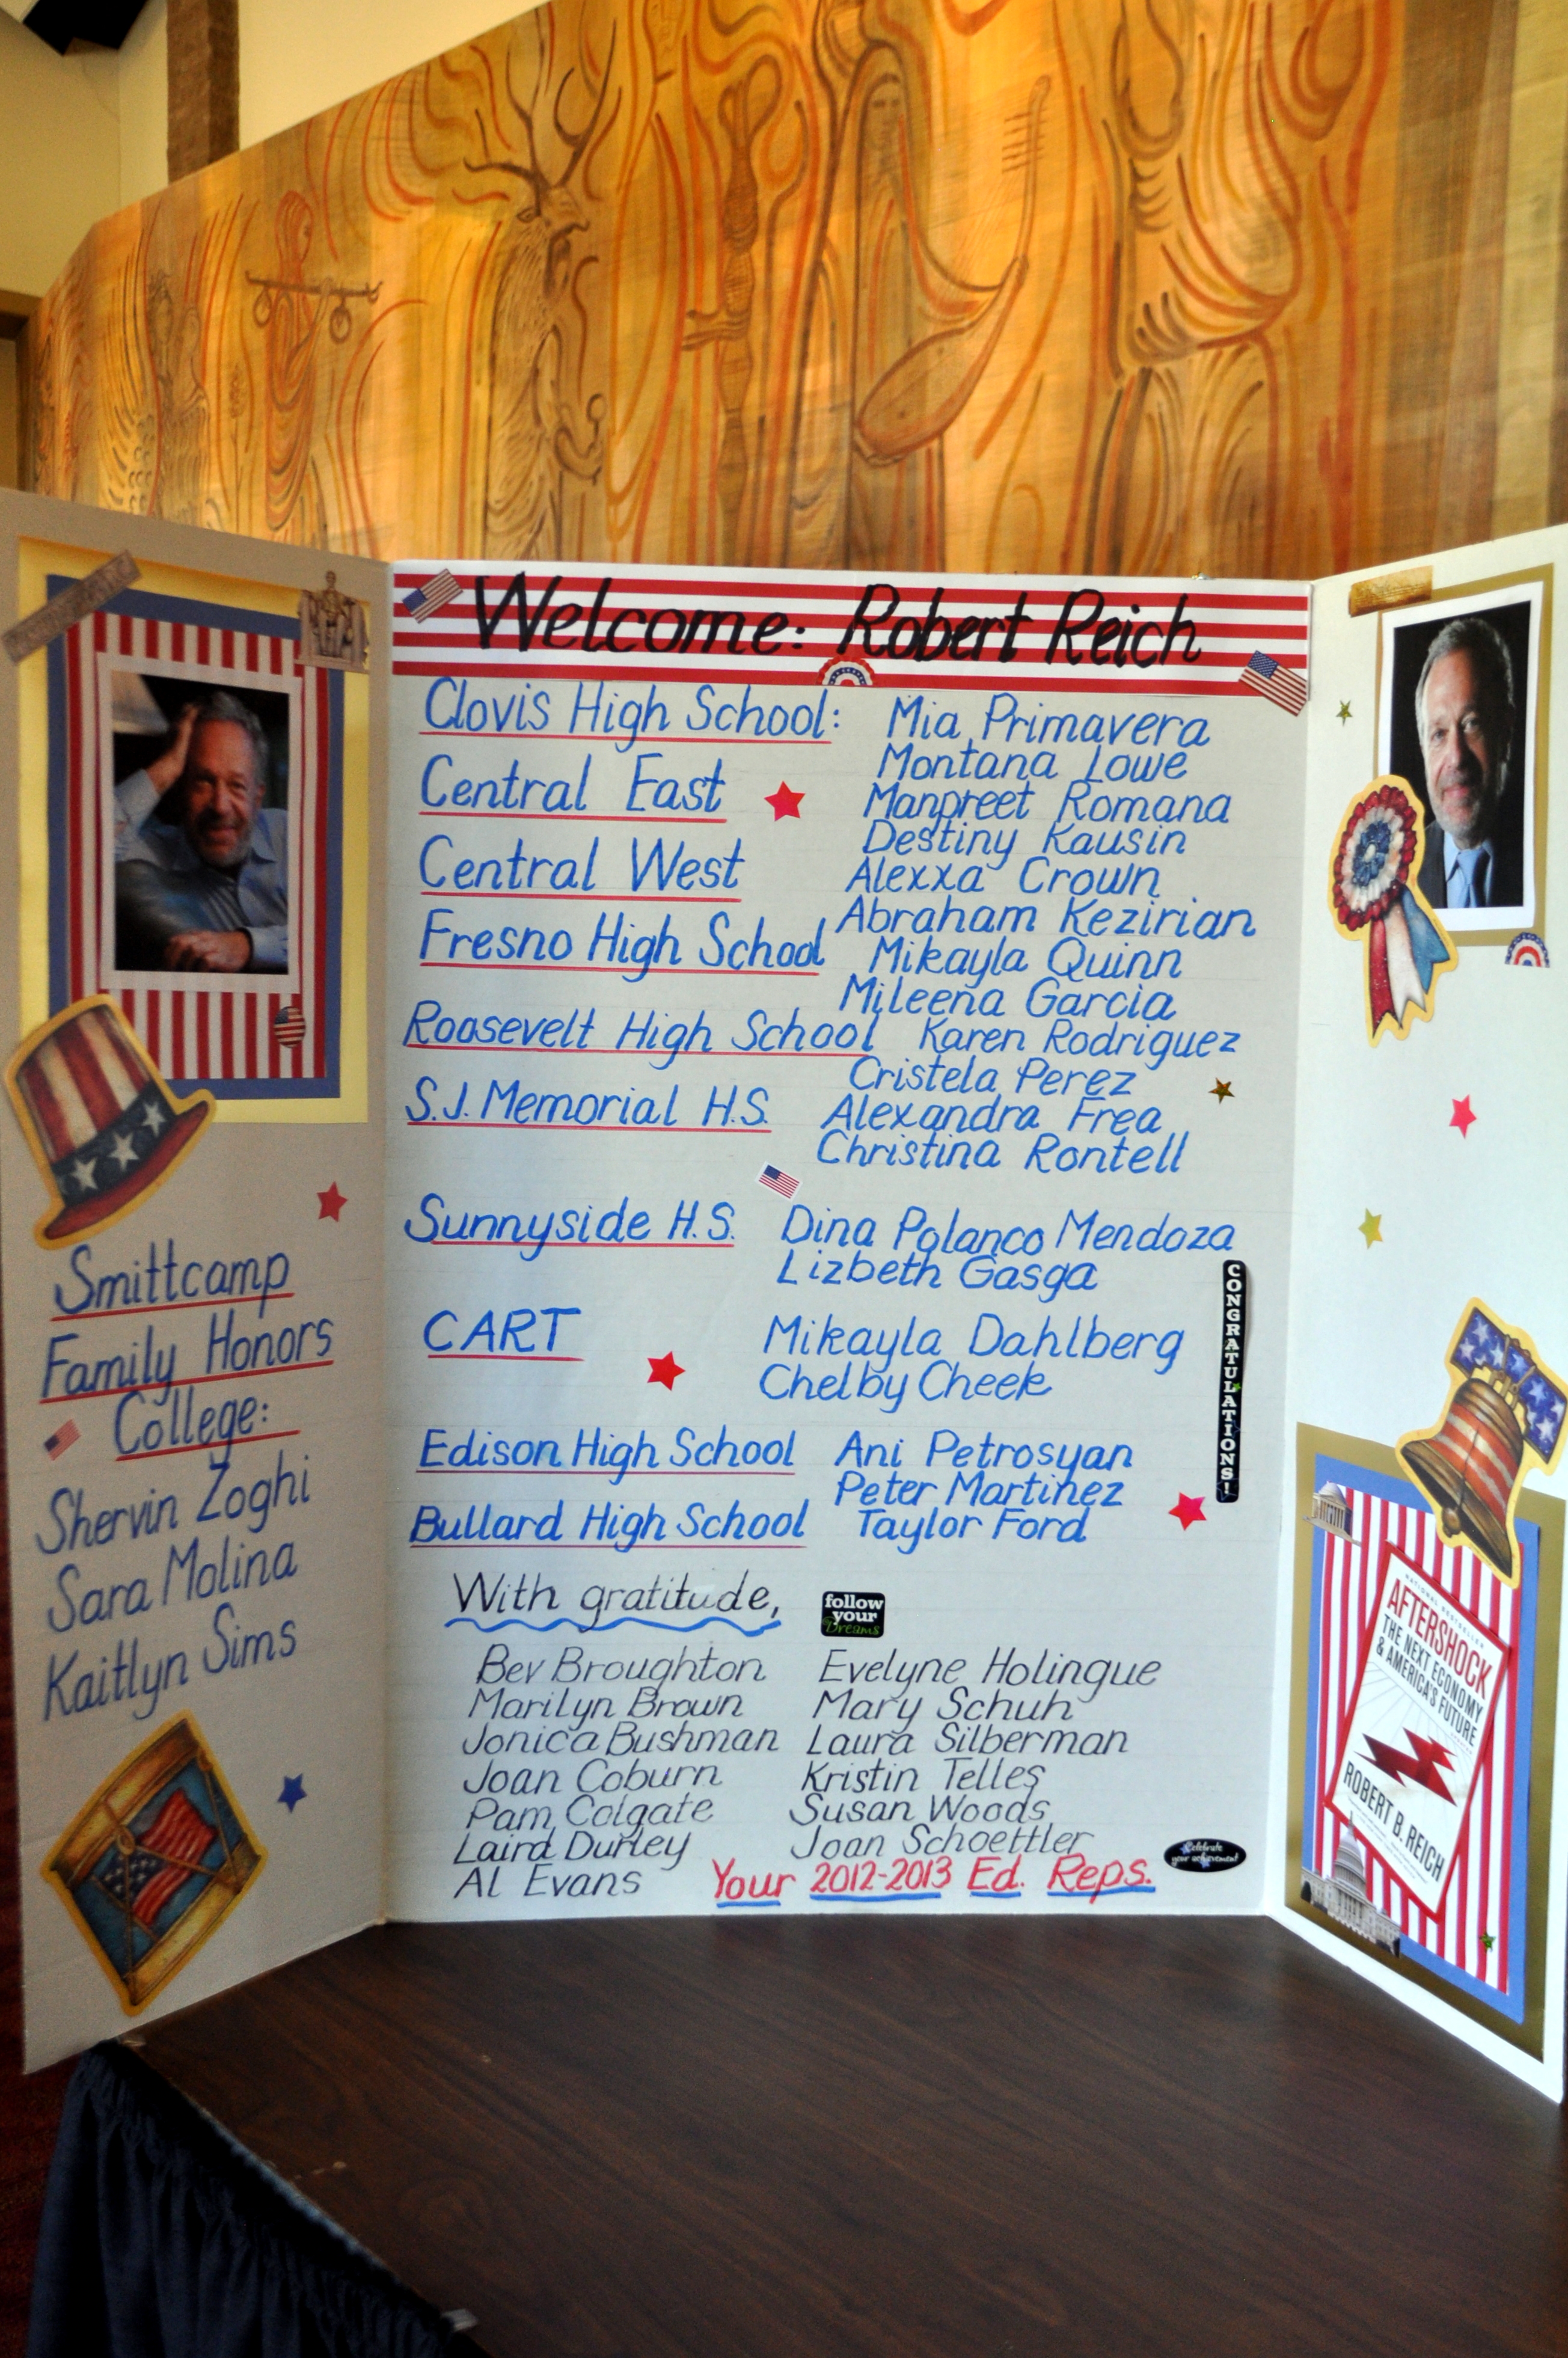 Welcome: Robert Reich
Clovis High School: Mia Primavera
Montana Lowe
Central East Manpreet Romana
Destiny Kausin
Central West Alexxa Crown
Abraham Kezirian
Fresno High School Mikayla Quinn
Mileena Garcia
Roosevelt High School Karen Rodriguez
Cristela Perez
S.J. Memorial H.S. Alexandra Frea
Christina Rontell
Sunnyside H.S. Dina Polanco Mendoza
Lizbeth Gasga
CART Mikayla Dahlberg
Chelby Cheek
Edison High School Ani Petrosyan
Peter Martinez
Bullard High School Taylor Ford
CONGRATULATIONS!
With gratitude,
follow
your
Dreams
Bev Broughton Evelyne Holingue
Marilyn Brown Mary Schuh
Jonica Bushman Laura Silberman
Joan Coburn Kristin Telles
Pam Colgate Susan Woods
Laird Durley Joan Schoettler
Al Evans Your 2012-2013 Ed. Reps.
Celebrate
your achievement
Smittcamp
Family Honors
College:
Shervin Zoghi
Sara Molina
Kaitlyn Sims
NATIONAL BESTSELLER
AFTERSHOCK
THE NEXT ECONOMY
& AMERICA'S FUTURE
ROBERT B. REICH